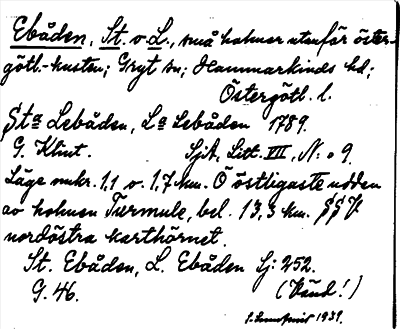 Ebåden, St. o. L., små holmar utanför öster-
götl.-kusten; Gryt sn; Hammarkinds hd;
Östergötl. l.
Sta Lebåden, La Lebåden 1789.
G. Klint. SjA, Litt. VII, N:o 9.
Läge mkr. 1,1 o. 1,7 km. Ö östligaste udden
av holmen Turmule, bel. 13,3 km. SSV.
nordöstra karthörnet.
St. Ebåden, L. Ebåden Sj: 252.
G. 46. (Vänd!)
1939.